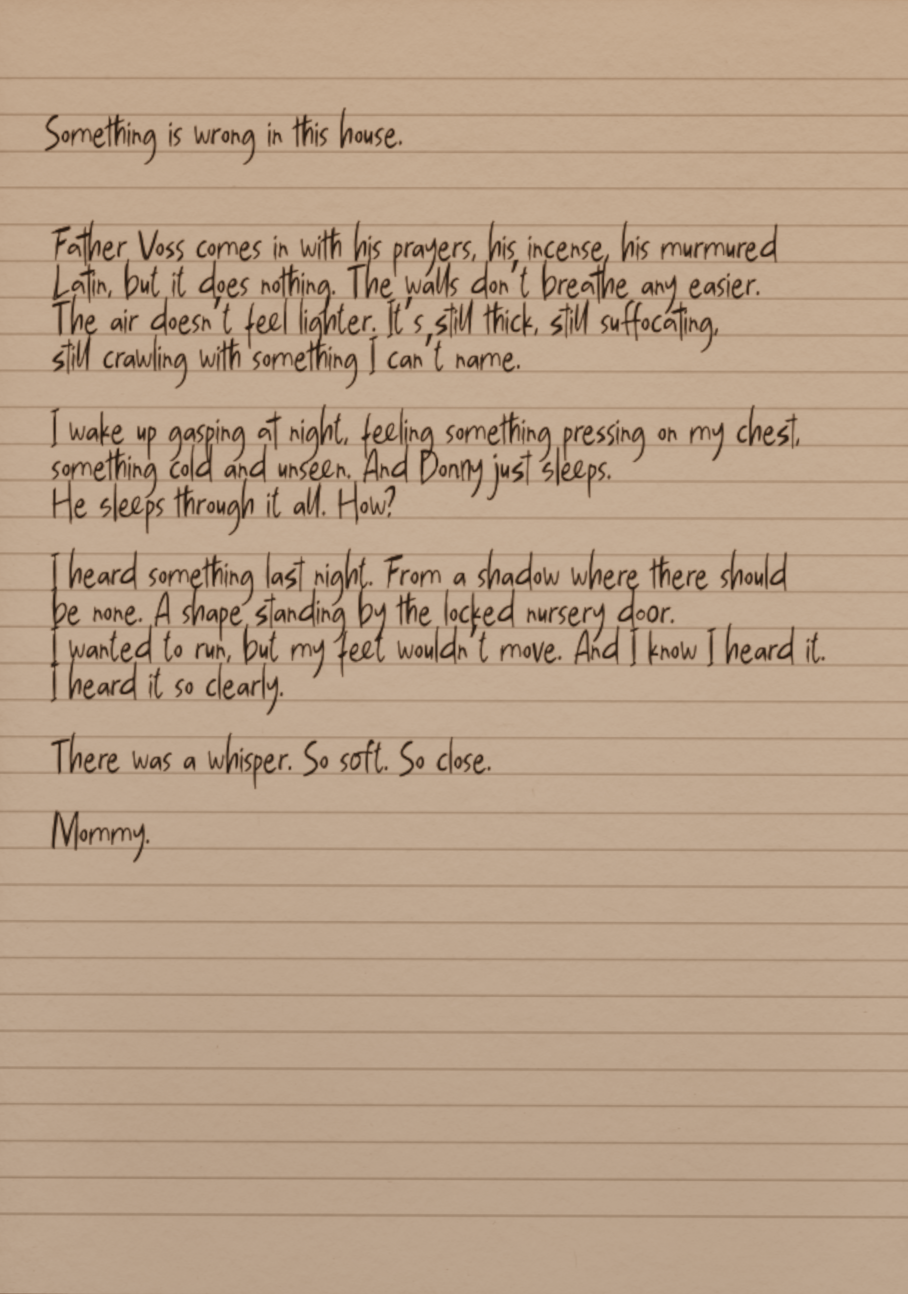 Something is wrong in this house.
Father Voss comes in with his prayers, his incense, his murmured
Latin, but it does nothing. The walls don't breathe any easier.
The air doesn't feel lighter. It's still thick, still suffocating,
still crawling with something I can't name.
I wake up gasping at night, feeling something pressing on my chest,
something cold and unseen. And Donny just sleeps.
He sleeps through it all. How?
I heard something last night. From a shadow where there should
be none. A shape standing by the locked nursery door.
I wanted to run, but my feet wouldn't move. And I know I heard it.
I heard it so clearly.
There was a whisper. So soft. So close.
Mommy.